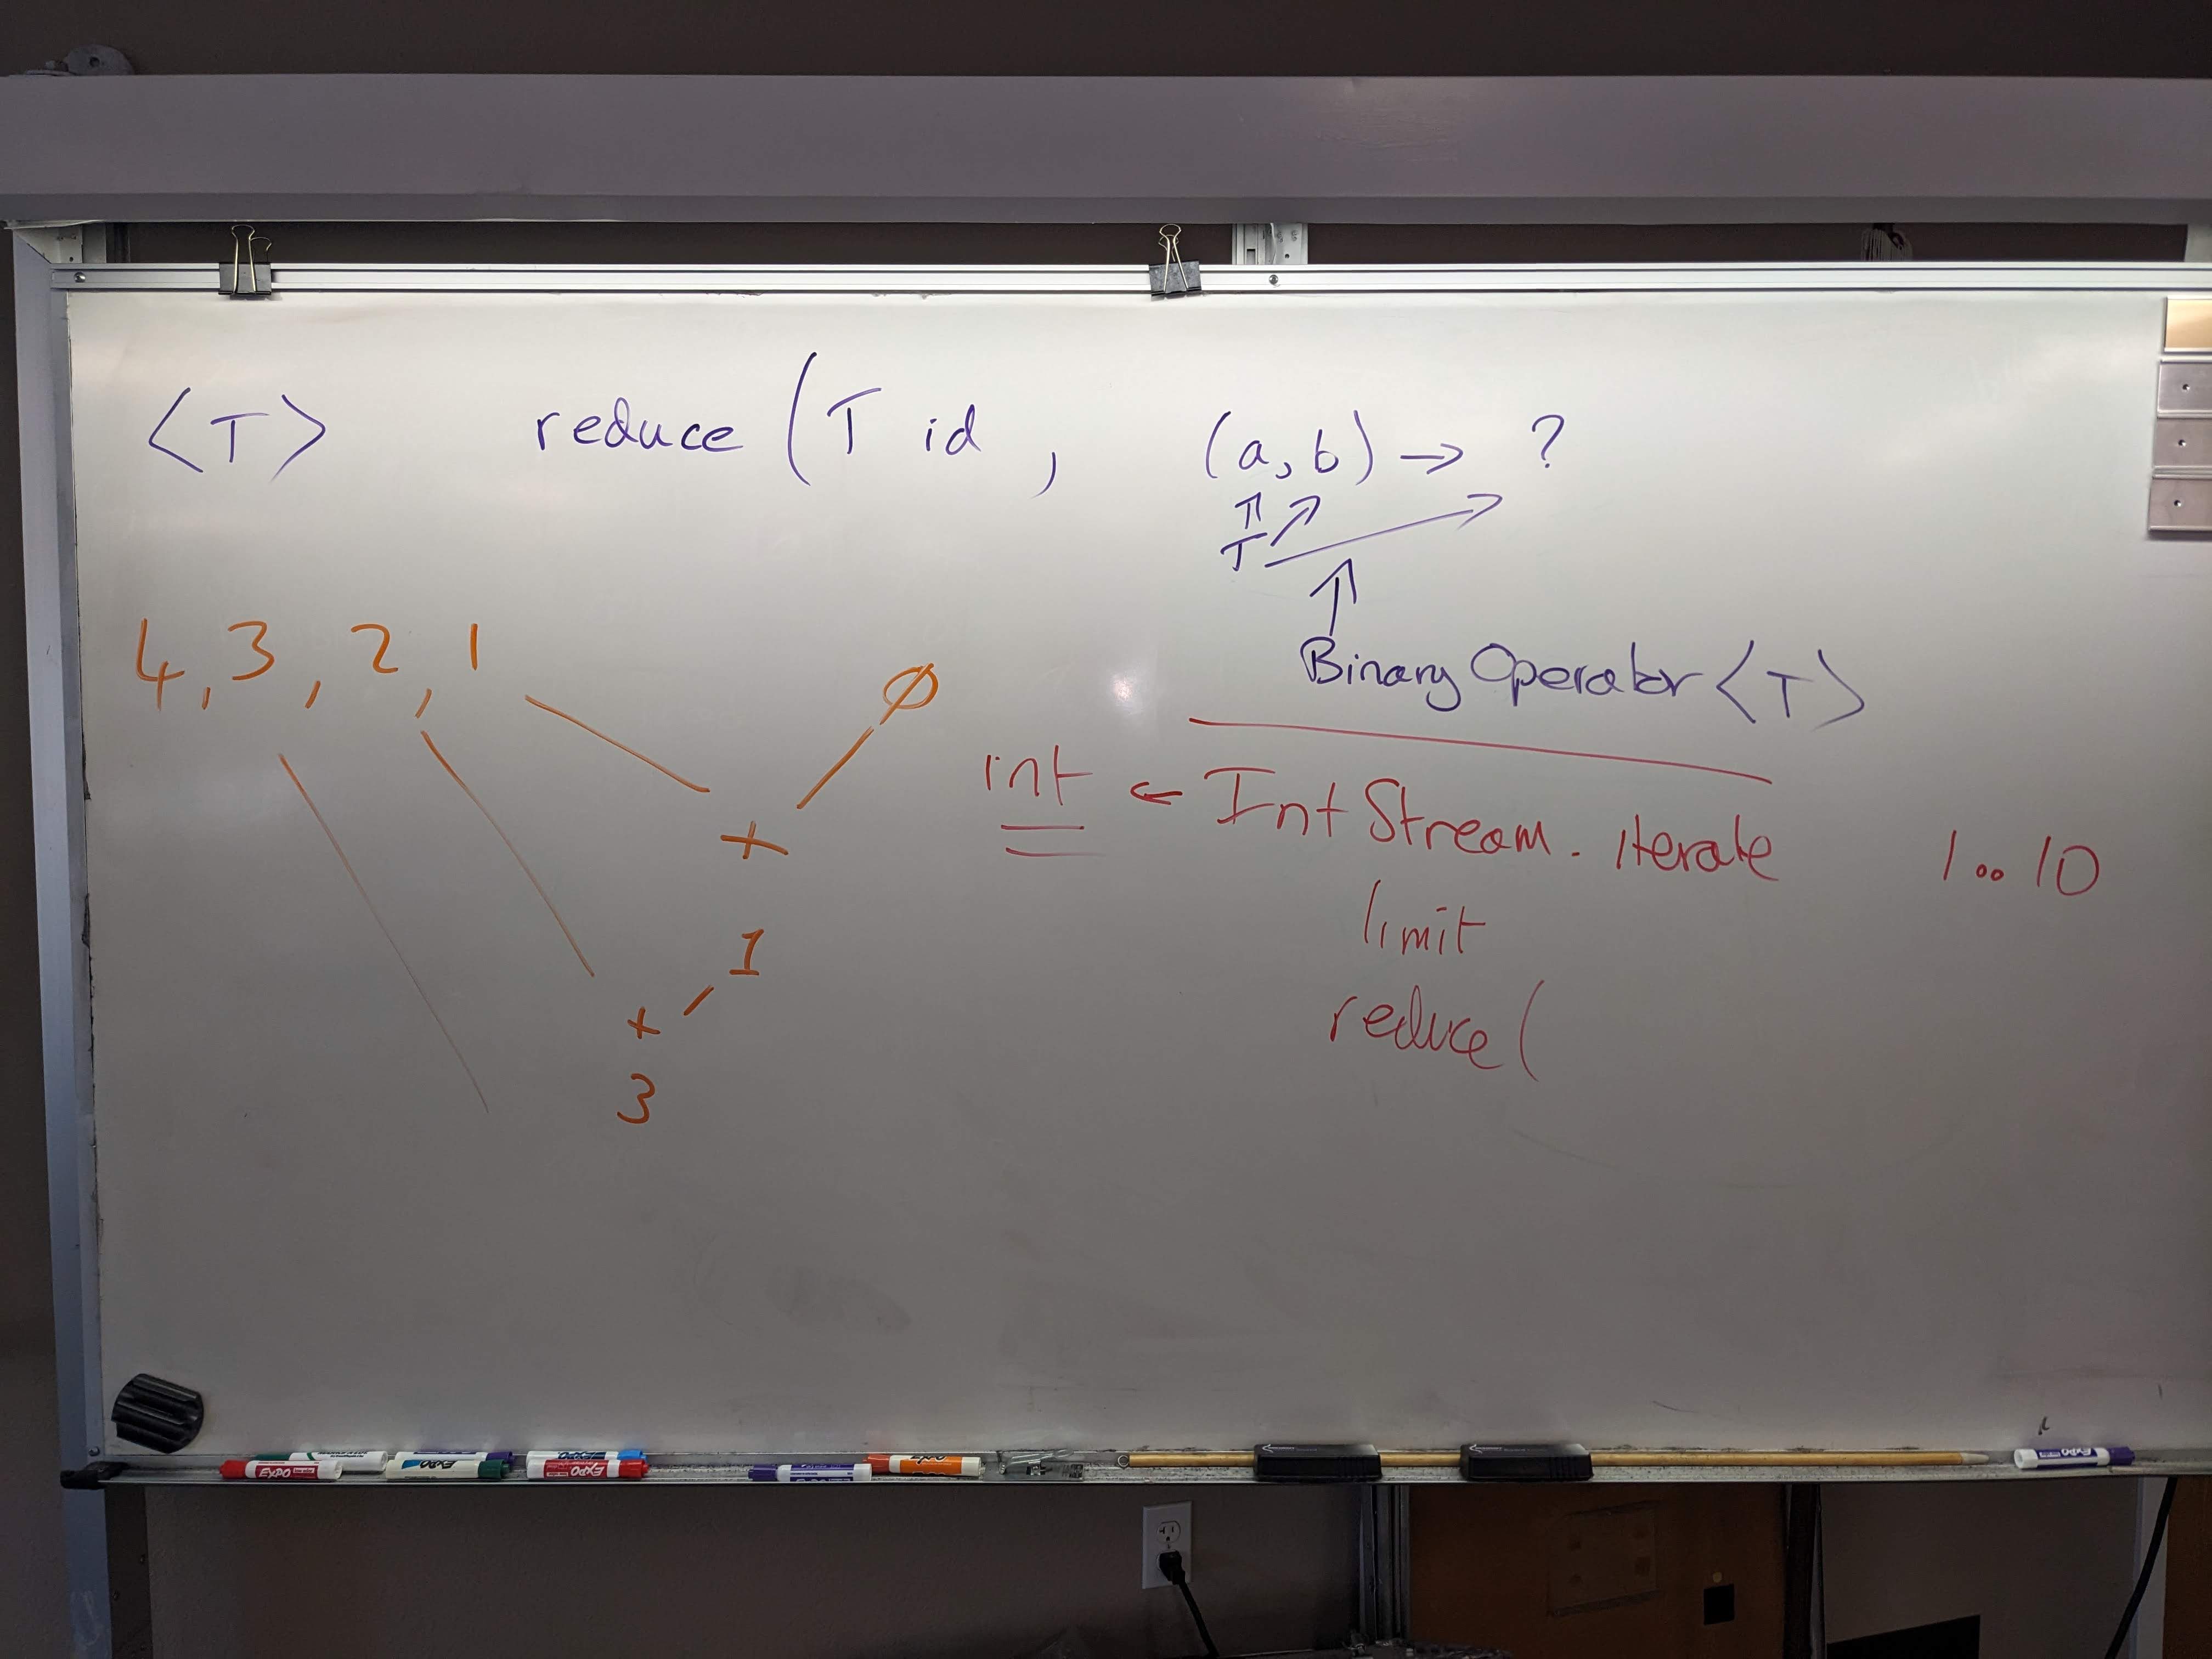 <T> reduce (T id , (a,b) → ?
T
Binary Operator <T>
4, 3, 2, 1
Ø
+
1
+
3
int ← IntStream. iterate 1..10
limit
reduce (
EXPO
EXPO
EXPO
EXPO
EXPO
EXPO